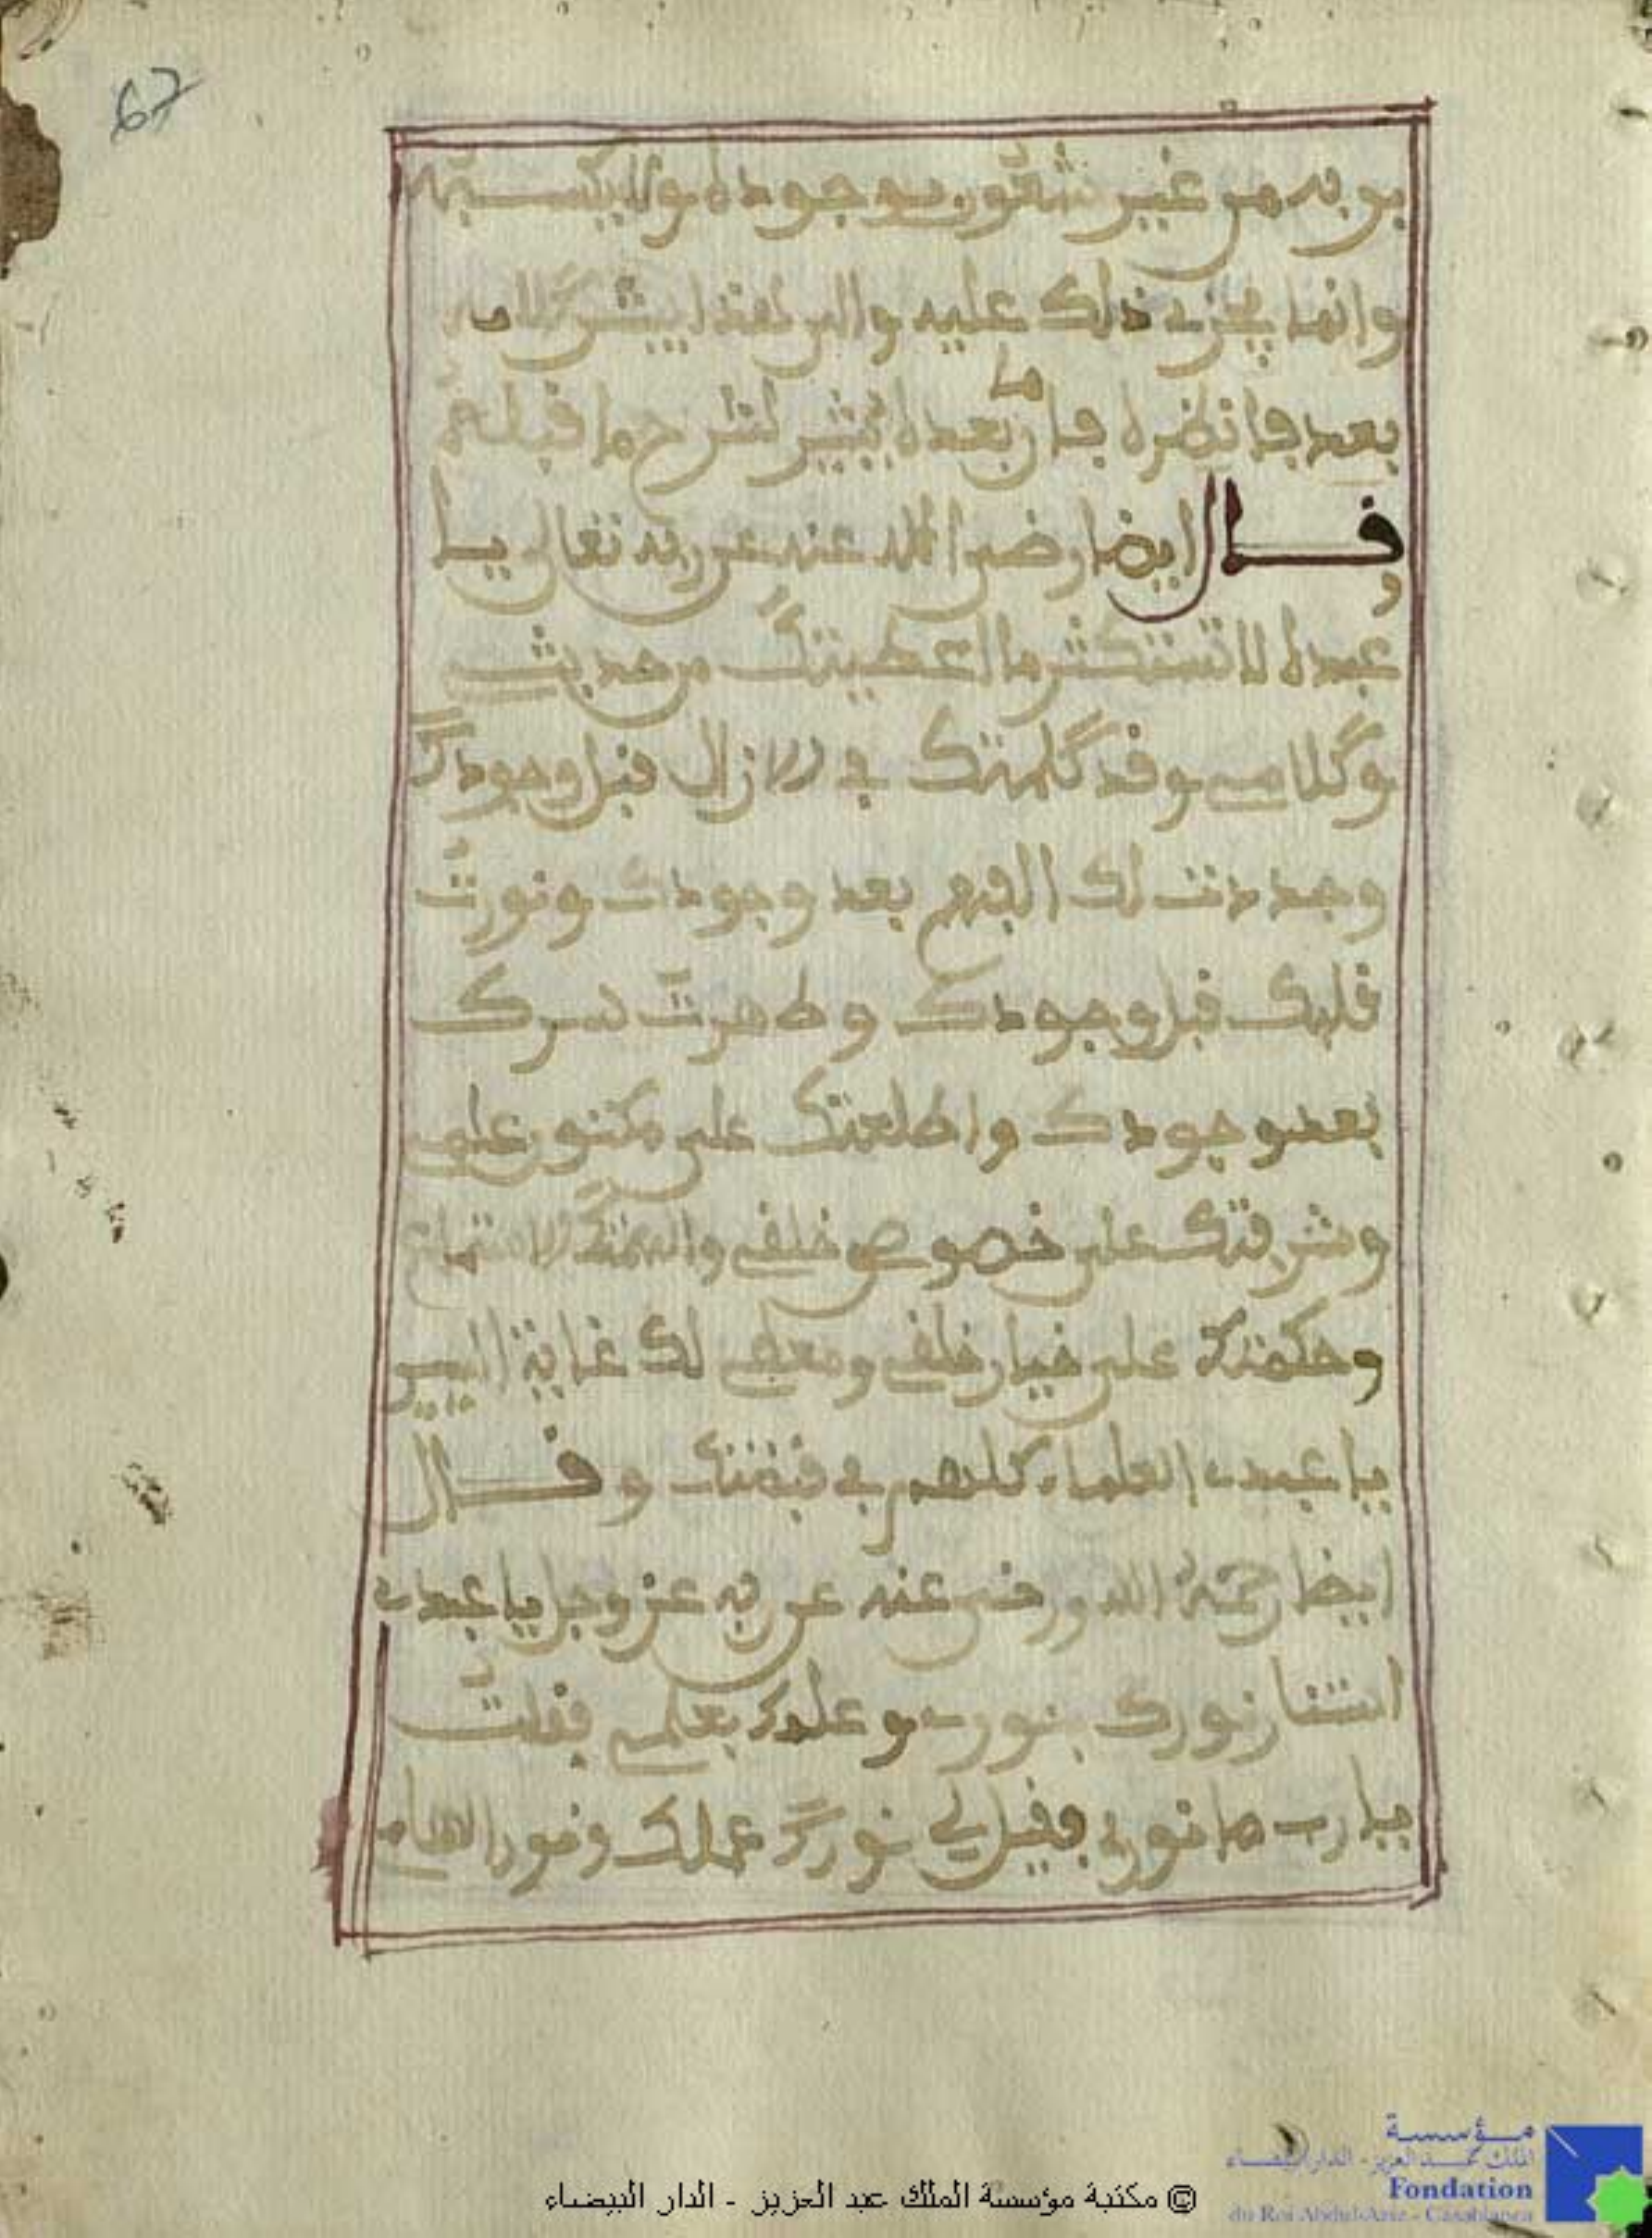 67
بربه من غير شعور بوجوده ولا بكسبه
وانما يجري ذلك عليه والى هذا يشير كلامه
بعد فانظره فان ما بعده يشير لشرح ما قبله
وقال ايضا رضى الله عنه عن ربه تعالى يا
عبده لا تستكثر ما اعطيتك من حديثي
وكلامي وقد كلمتك في الازال قبل وجودك
وجددت لك الفهم بعد وجودك ونورت
قلبك قبل وجودك وطهرت سرك
بعد وجودك واطلعتك على مكنون علمي
وشرفتك على خصوص خلقي
وحكمتك على خيار خلقي لك غاية
يا عبدي العلماء كلهم في قبضتك وقال
ايضا رحمة الله ورضي عنه عن ربه عز وجل يا عبدي
استنار نورك بنوري وعلمك بعلمي فقلت
يا رب ما نوري فقيل لي نورك عملك ونور
© مكتبة مؤسسة الملك عبد العزيز - الدار البيضاء
مؤسسة
الملك عبد العزيز - الدار البيضاء
Fondation
du Roi Abdul-Aziz - Casablanca